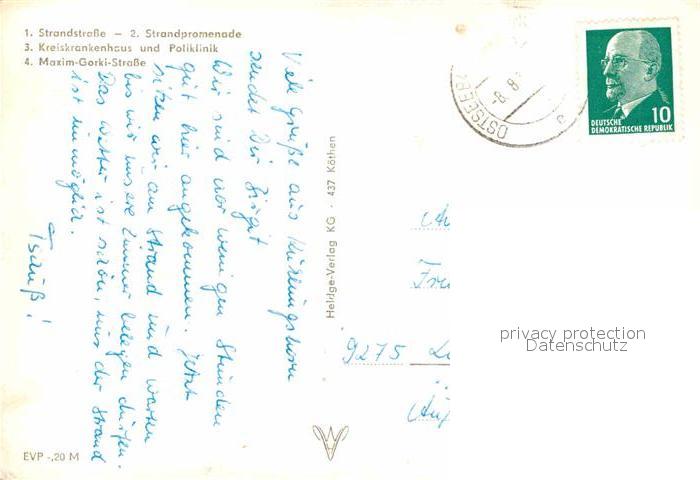 1. Strandstraße – 2. Strandpromenade
3. Kreiskrankenhaus und Poliklinik
4. Maxim-Gorki-Straße
Viele Grüße aus Kühlungsborn
sendet Dir Birgit
Wir sind vor wenigen Stunden
gut hier angekommen. Jetzt
sitzen wir am Strand und warten
bis wir unsere Zimmer belegen dürfen.
Das Wetter ist schön, nur der Strand
ist unmöglich.
Tschüß!
Heldge-Verlag KG · 437 Köthen
EVP -,20 M
OSTSEEB
-8. 8.
c
10
DEUTSCHE
DEMOKRATISCHE REPUBLIK
9275
privacy protection
Datenschutz